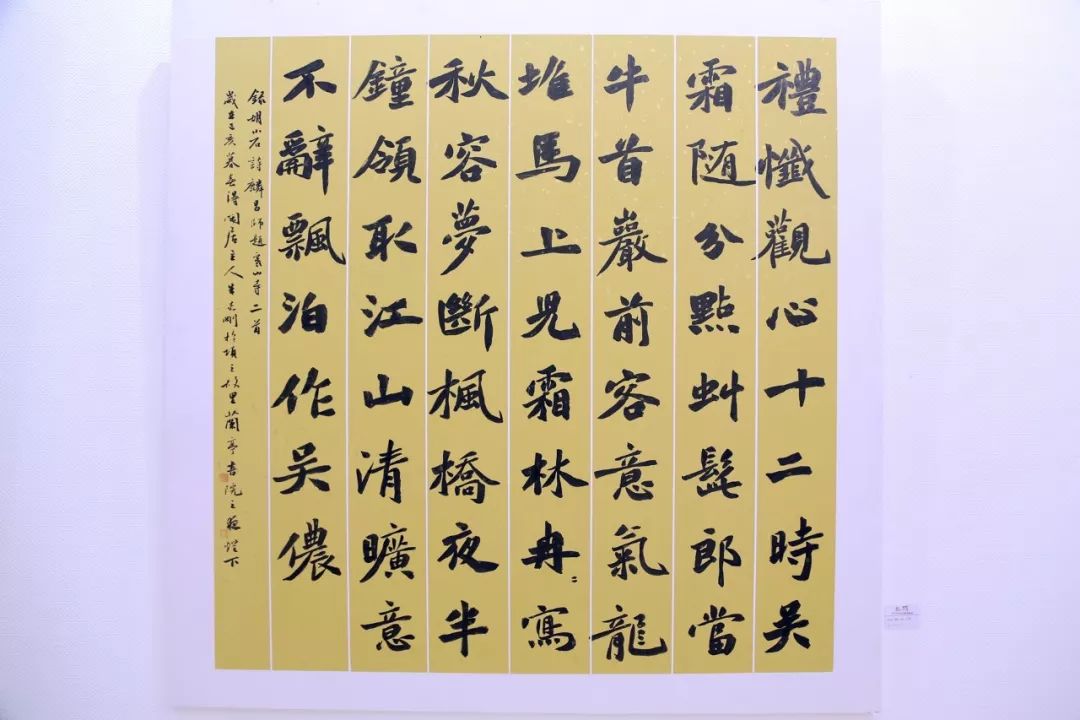 禮懺觀心十二時吳
霜随分點虯髭郎當
牛首巖前容意氣龍
堆馬上見霜林冉〻寫
秋容夢斷楓橋夜半
鐘領取江山清曠意
不辭飄泊作吳儂
錄胡小石詩麟昌師題寒山寺二首
歲在己亥暮春得閑居主人朱志剛於填之故里蘭亭書院之聽